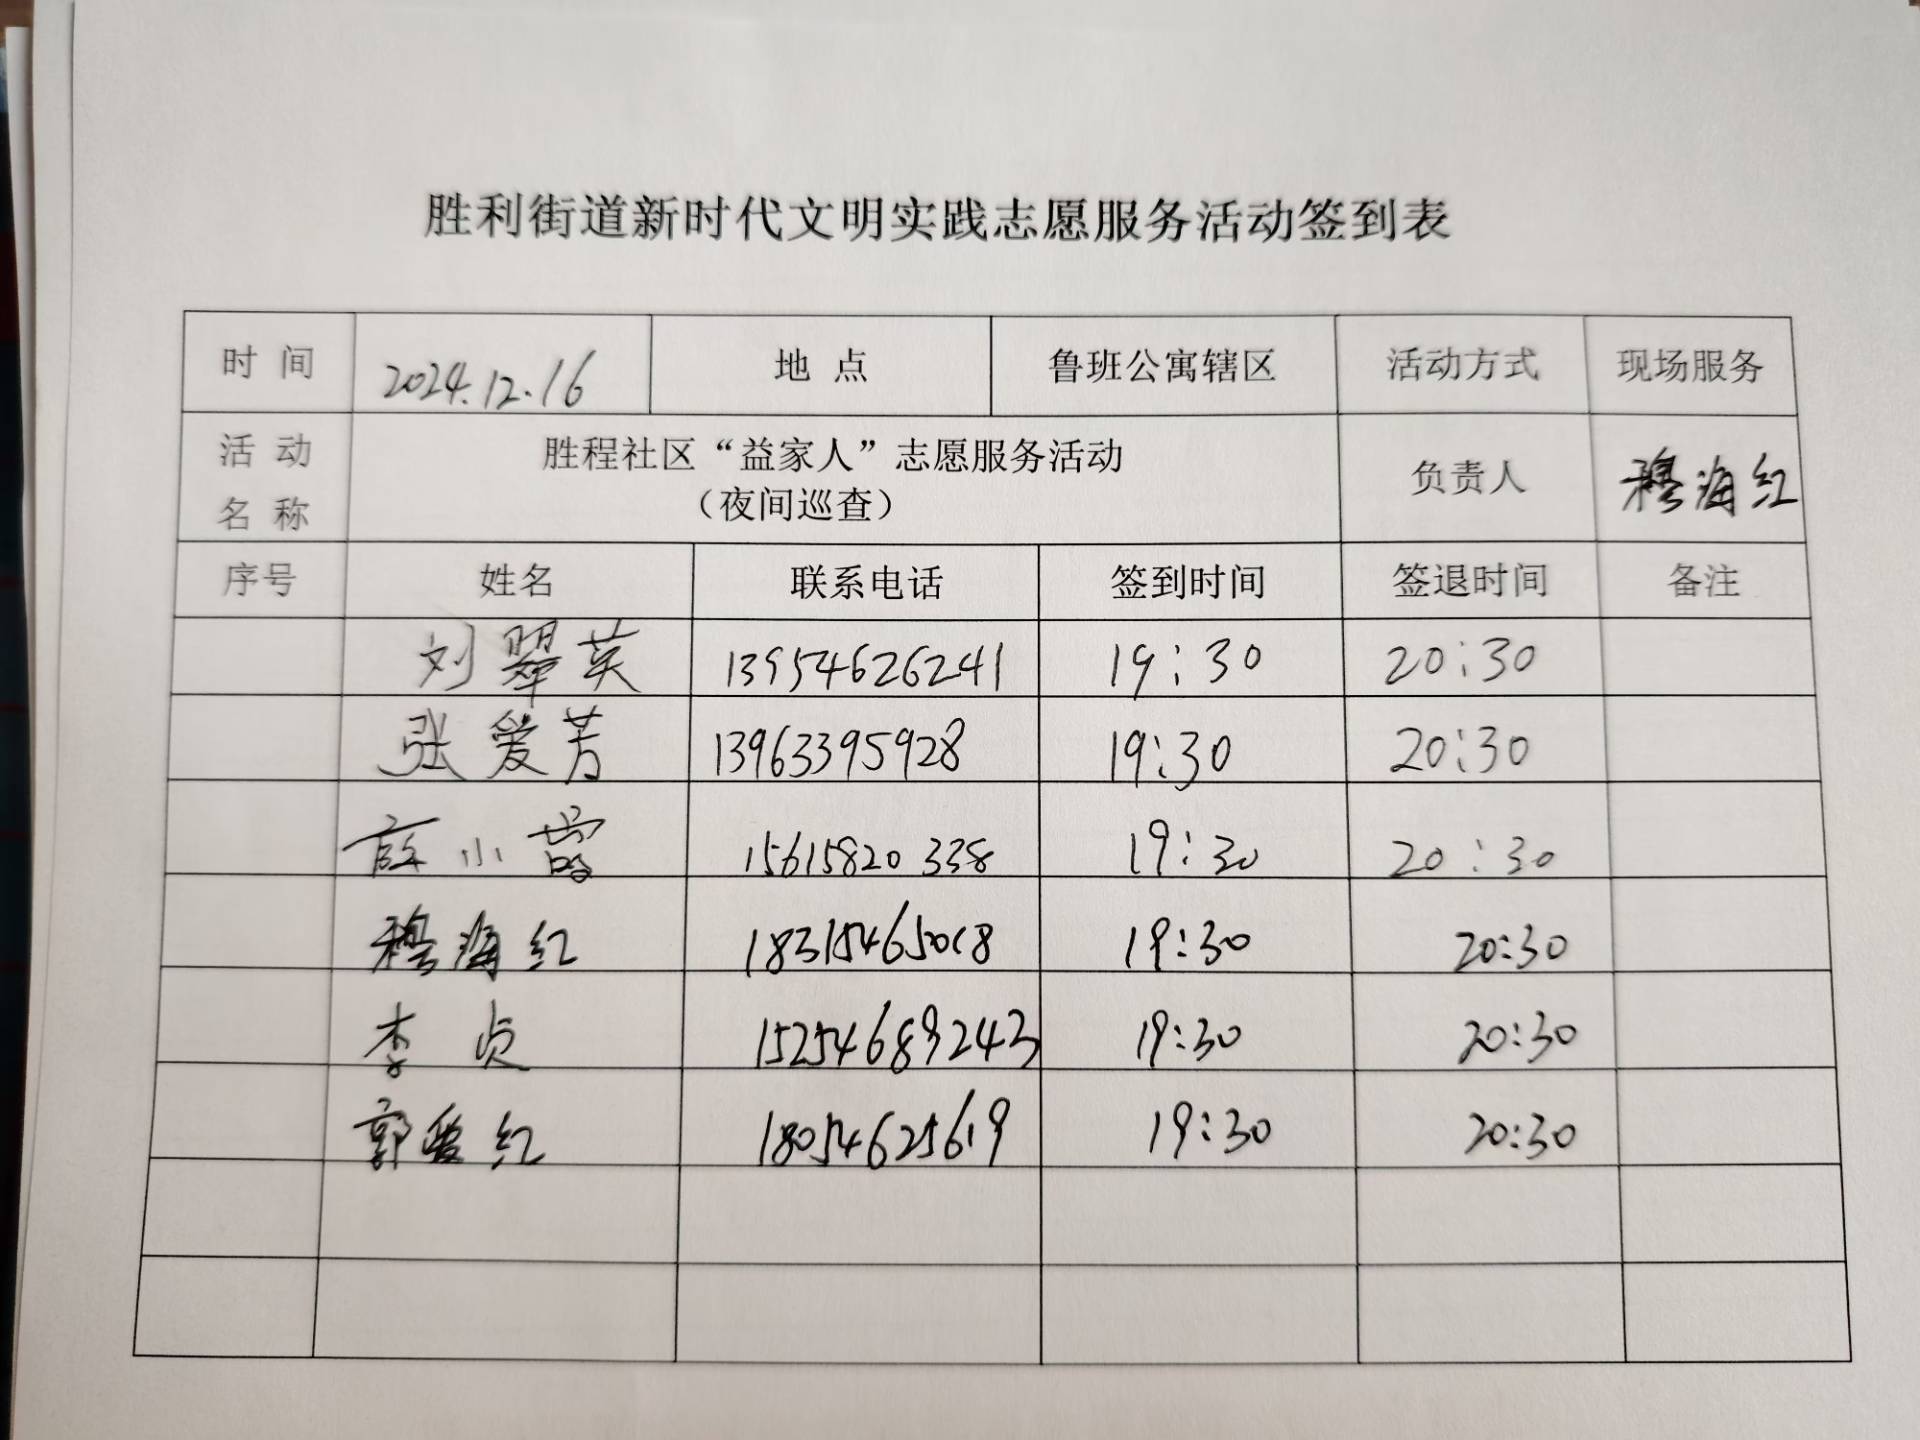 胜利街道新时代文明实践志愿服务活动签到表
时 间 2024.12.16 地 点 鲁班公寓辖区 活动方式 现场服务
活 动 名 称 胜程社区“益家人”志愿服务活动 （夜间巡查） 负责人 穆海红
序号 姓名 联系电话 签到时间 签退时间 备注
刘翠英 13954626241 19:30 20:30
张爱芳 13963395928 19:30 20:30
小 15615820338 19:30 20:30
穆海红 18315465018 19:30 20:30
李贞 15254689243 19:30 20:30
郭爱红 18054625619 19:30 20:30